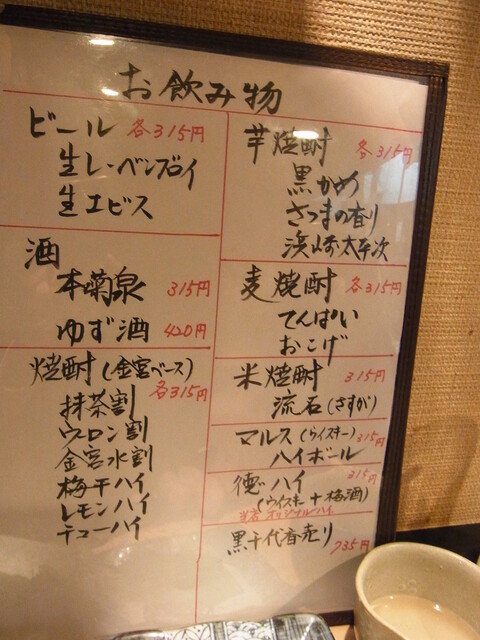 お飲み物
ビール 各315円
生レーベンブロイ
生エビス
酒
本菊泉 315円
ゆず酒 420円
焼酎(金宮ベース)
各315円
抹茶割
ウーロン割
金宮水割
梅干ハイ
レモンハイ
チューハイ
芋焼酎 各315円
黒かめ
さつまの香り
浜
太平次
麦焼酎 各315円
てんぱい
おこげ
米焼酎 315円
流石(さすが)
マルス(ウイスキー) 315円
ハイボール
徳ハイ 315円
(ウイスキー+梅酒)
当店オリジナルハイ
黒千代香売り 735円